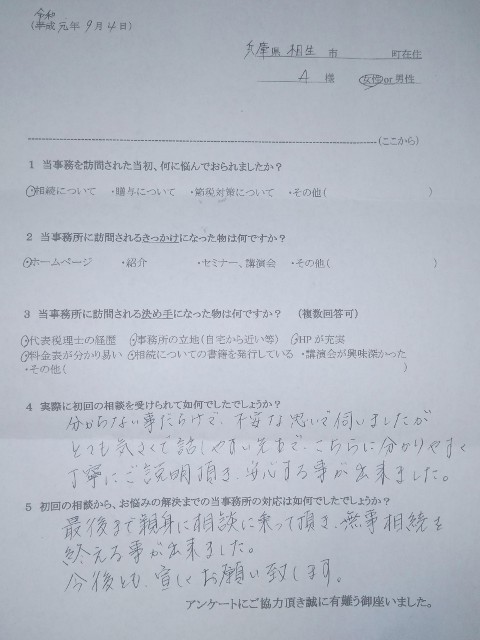 令和
(平成 元年 9月 4日)
兵庫県 相生 市 町在住
A 様 女性 or 男性
(ここから)
1 当事務を訪問された当初、何に悩んでおられましたか？
・相続について ・贈与について ・節税対策について ・その他( )
2 当事務所に訪問されるきっかけになった物は何ですか？
・ホームページ ・紹介 ・セミナー、講演会 ・その他( )
3 当事務所に訪問される決め手になった物は何ですか？ (複数回答可)
・代表税理士の経歴 ・事務所の立地(自宅から近い等) ・HPが充実
・料金表が分かり易い ・相続についての書籍を発行している ・講演会が興味深かった
・その他( )
4 実際に初回の相談を受けられて如何でしたでしょうか？
分からない事だらけで、不安な思いで伺いましたが
とても気さくで話しやすい先生で、こちらに分かりやすく
丁寧にご説明頂き、安心する事が出来ました。
5 初回の相談から、お悩みの解決までの当事務所の対応は如何でしたでしょうか？
最後まで親身に相談に乗って頂き、無事相続を
終える事が出来ました。
今後とも、宜しくお願い致します。
アンケートにご協力頂き誠に有難う御座いました。